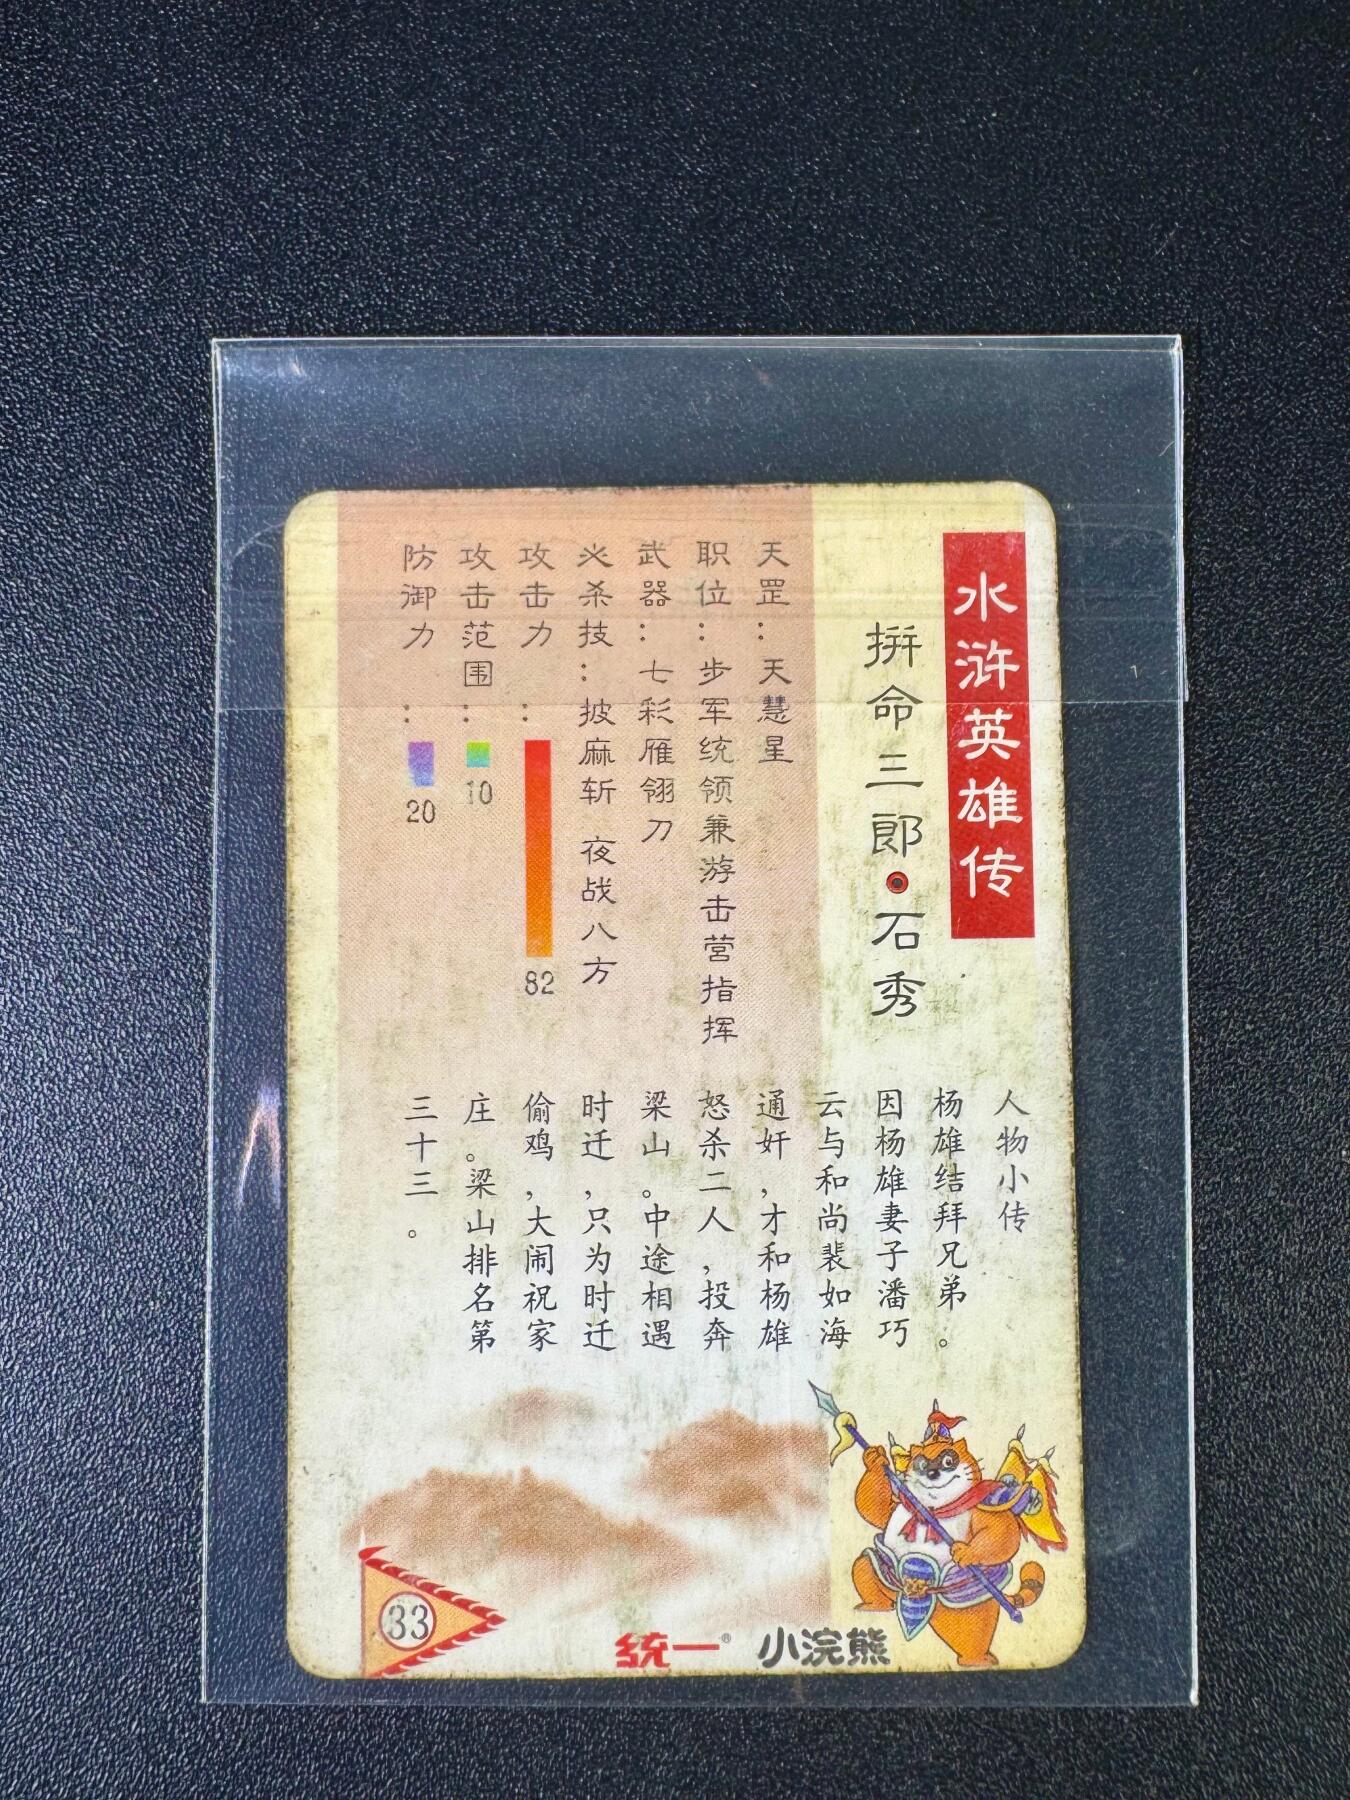 水浒英雄传
拼命三郎·石秀
天罡：天慧星
职位：步军统领兼游击营指挥
武器：七彩雁翎刀
必杀技：披麻斩 夜战八方
攻击力：82
攻击范围：10
防御力：20
人物小传
杨雄结拜兄弟。
因杨雄妻子潘巧
云与和尚裴如海
通奸，才和杨雄
怒杀二人，投奔
梁山。中途相遇
时迁，只为时迁
偷鸡，大闹祝家
庄。梁山排名第
三十三。
33
统一® 小浣熊